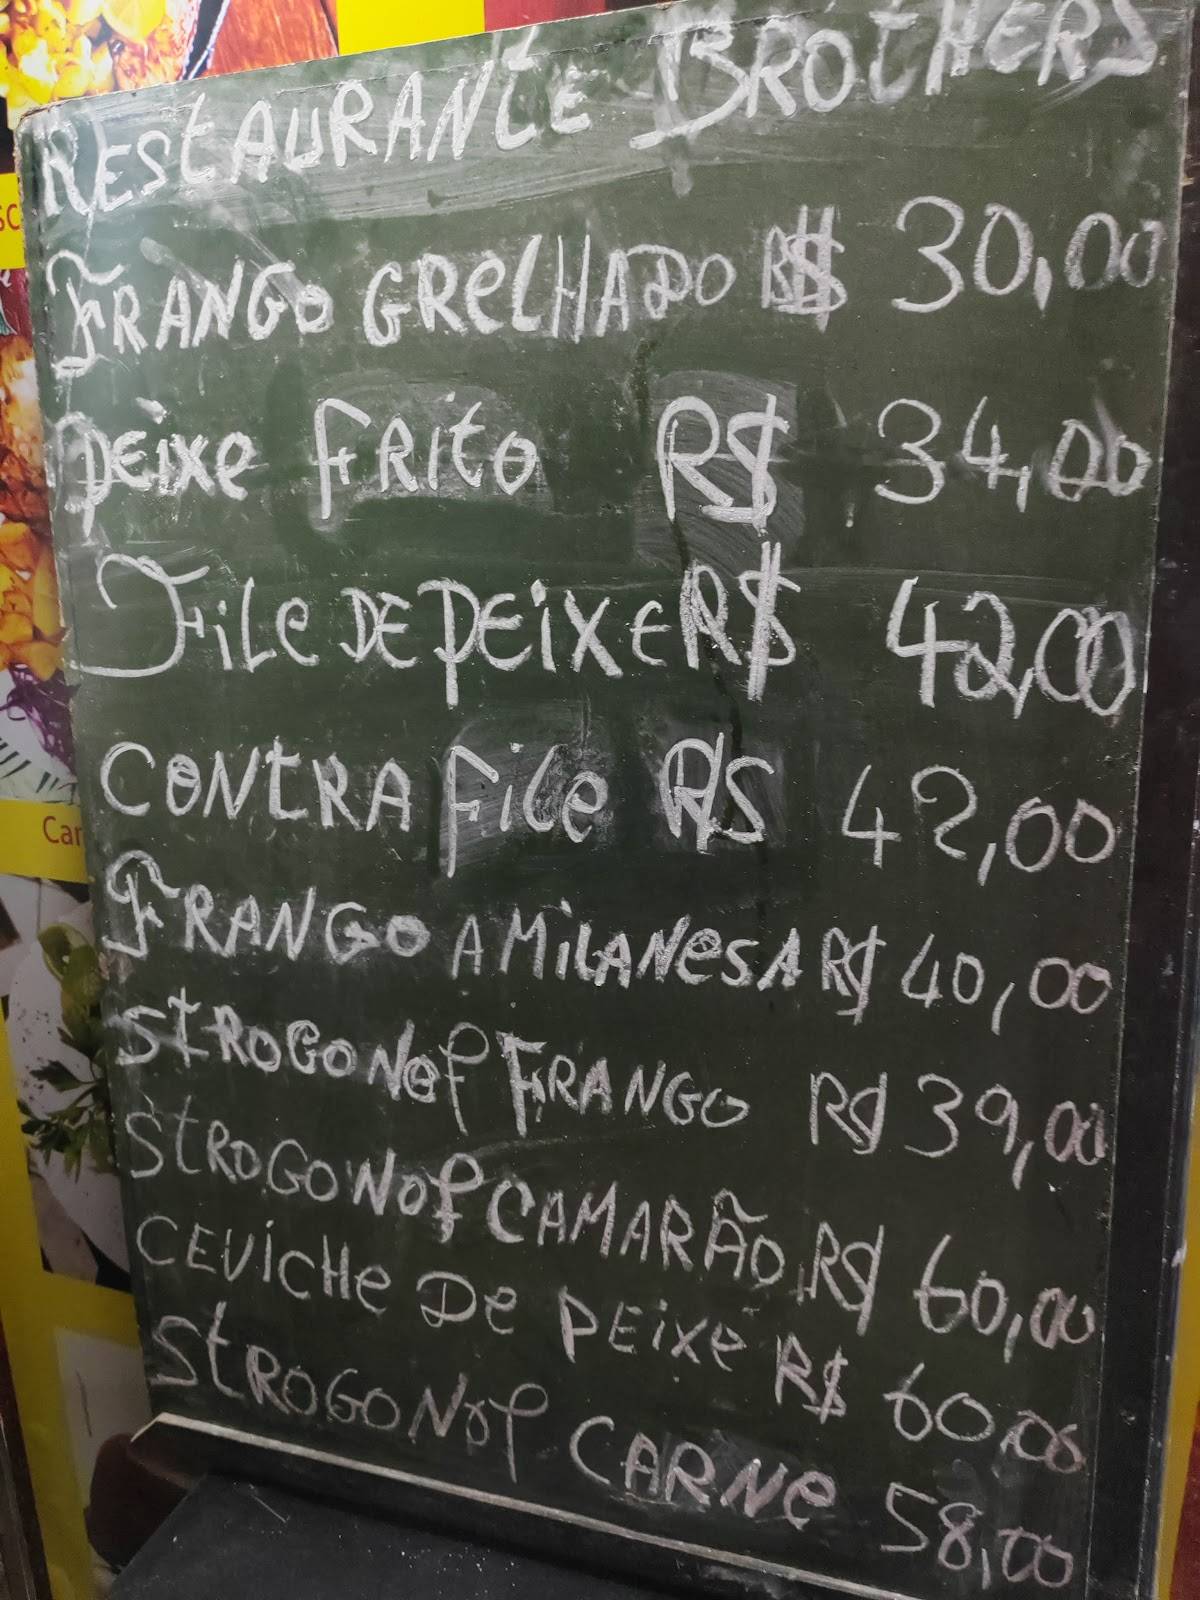 RESTAURANTE BROTHERS
FRANGO GRELHADO R$ 30,00
PEIXE FRITO R$ 34,00
FILE DE PEIXE R$ 42,00
CONTRA FILE R$ 42,00
FRANGO A MILANESA R$ 40,00
STROGONOF FRANGO R$ 39,00
STROGONOF CAMARÃO R$ 60,00
CEVICHE DE PEIXE R$ 60,00
STROGONOF CARNE 58,00
Car